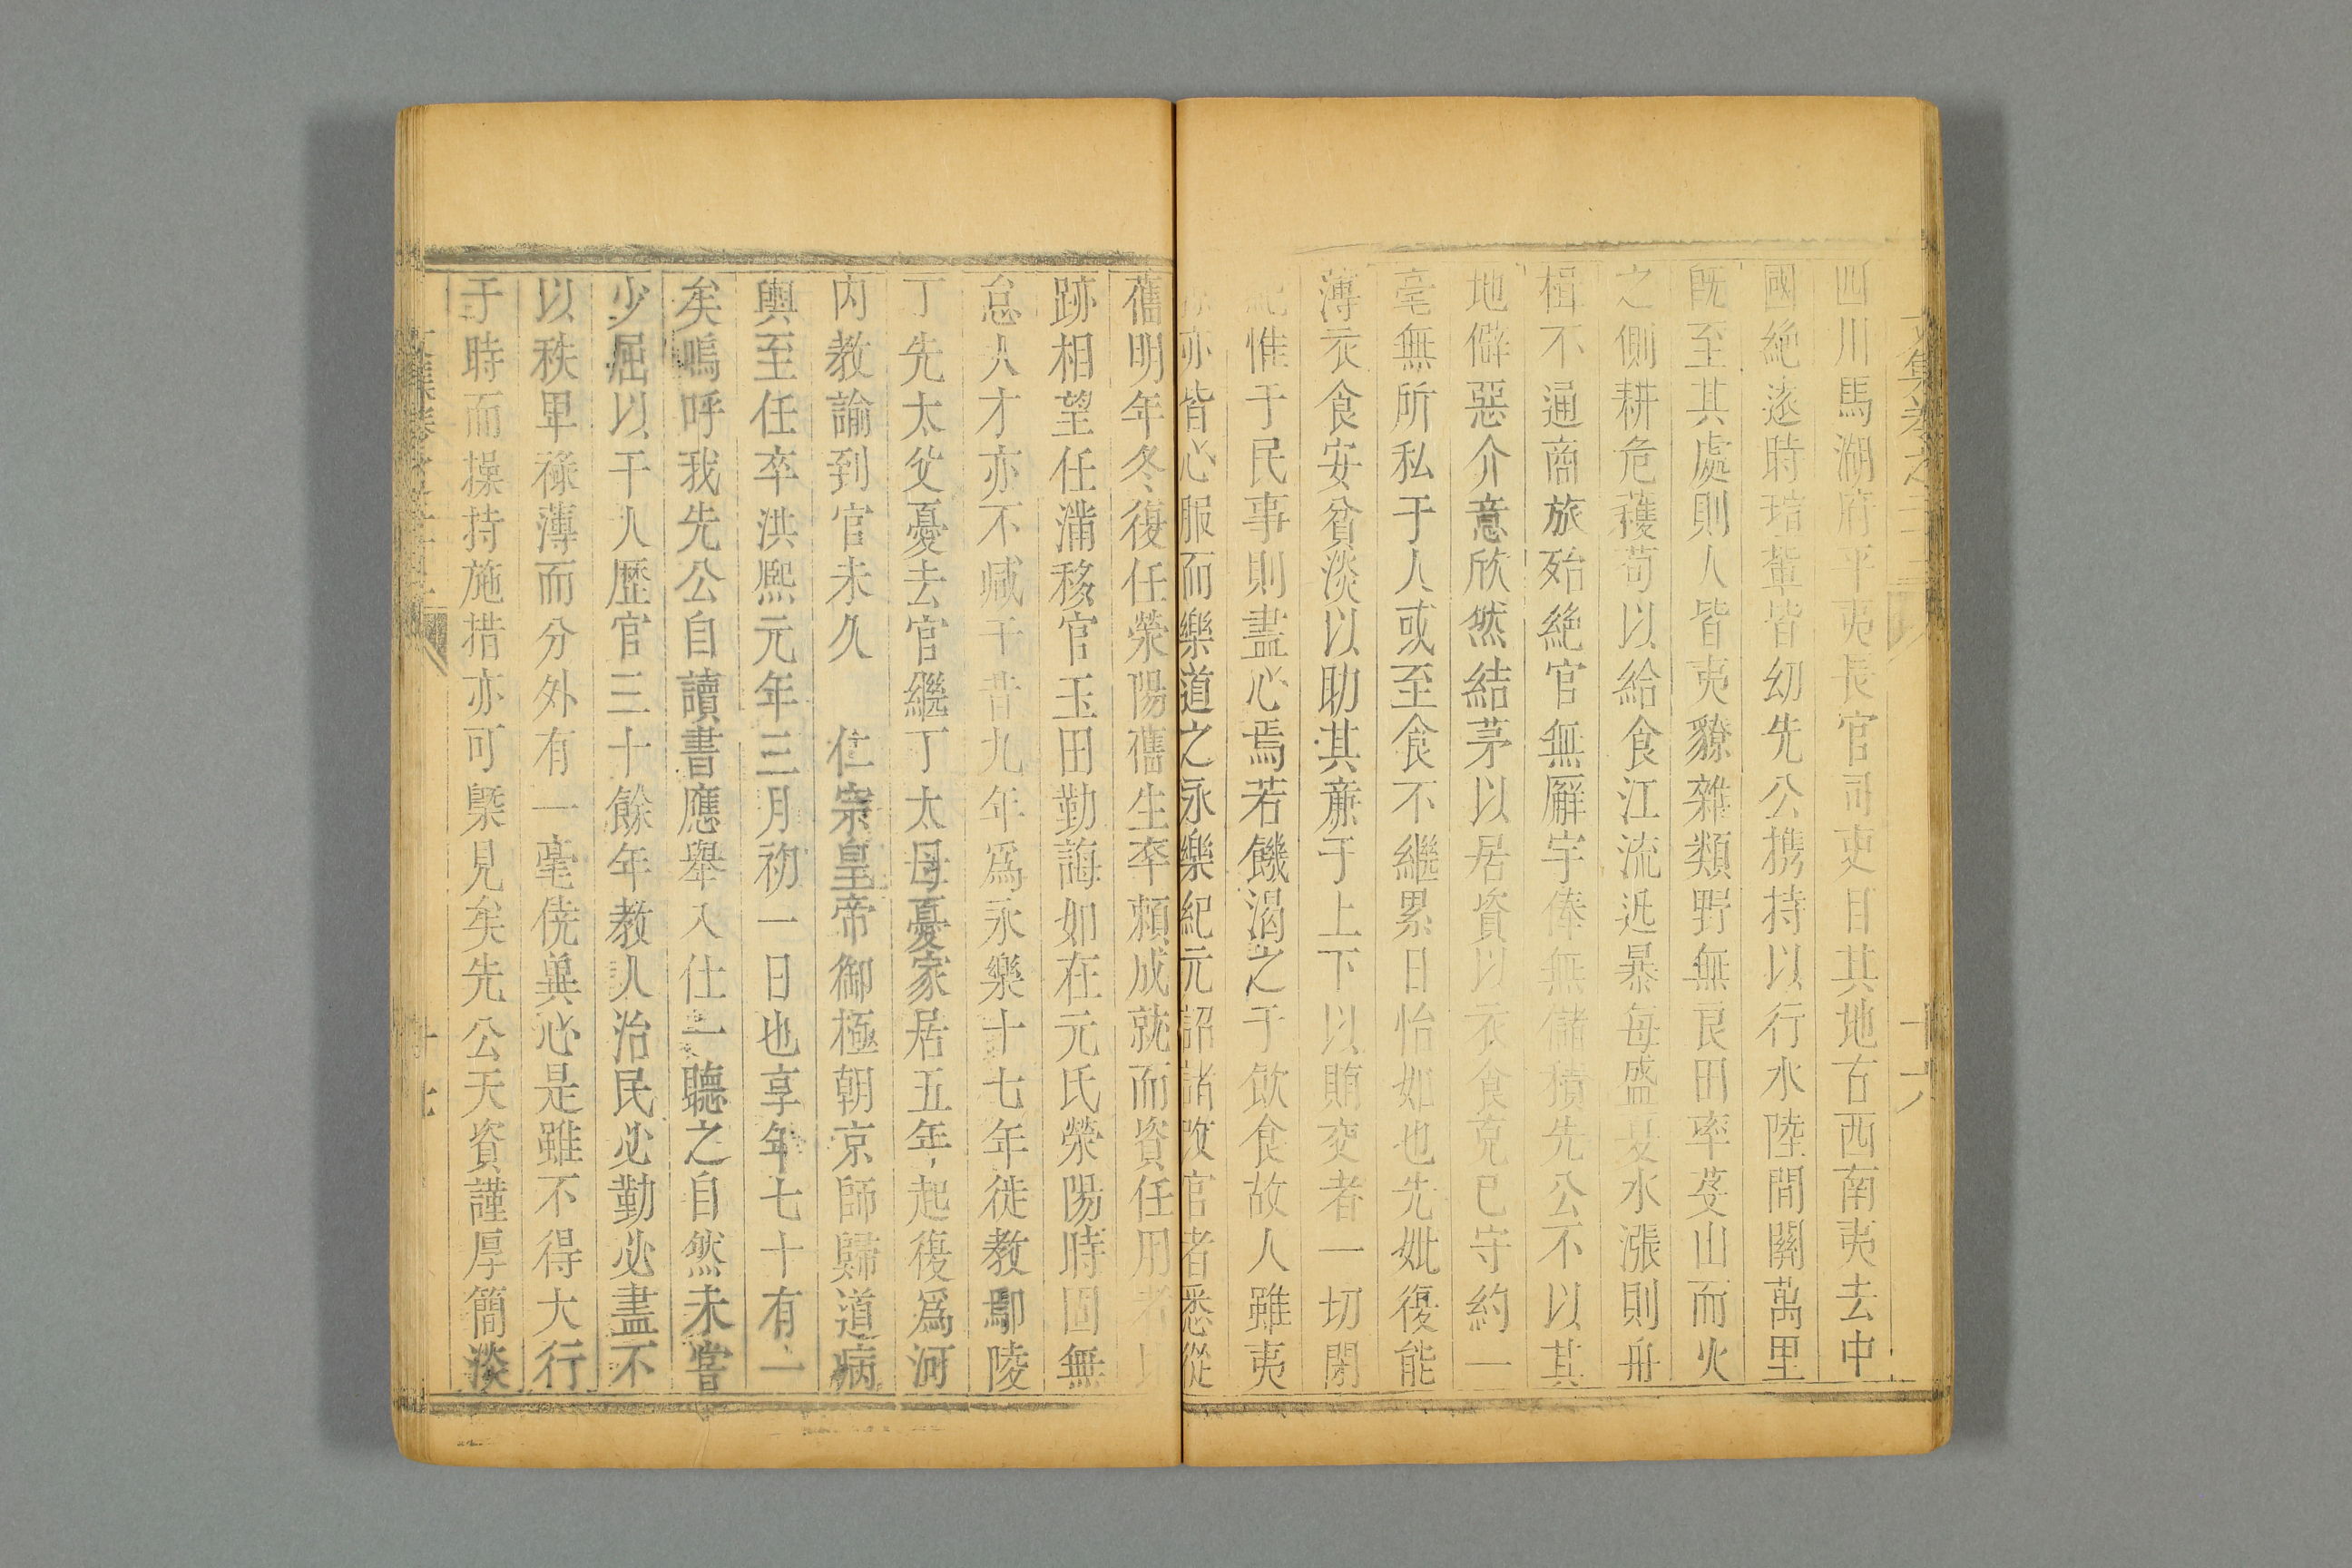 四川馬湖府平夷長官司吏目其地古西南夷去中
國絶遠時瑄輩皆幼先公携持以行水陸間關萬里
既至其處則人皆夷獠雜類野無良田率芟山而火
之側耕危穫苟以給食江流迅暴每盛夏水漲則舟
楫不通商旅殆絶官無廨宇俸無儲積先公不以其
地僻惡介意欣然結茅以居資以衣食克已守約一
毫無所私于人或至食不繼累日怡如也先妣復能
薄衣食安貧淡以助其廉于上下以賄交者一切閉
絶惟于民事則盡心焉若饑渴之于飲食故人雖夷
亦皆心服而樂道之永樂紀元詔諸改官者悉從
舊明年冬復任滎陽舊生率頼成就而資任用者比
跡相望任滿移官玉田勤誨如在元氏滎陽時固無
怠人才亦不減于昔九年爲永樂十七年徙教鄢陵
丁先太父憂去官繼丁太母憂家居五年起復爲河
内教諭到官未久 仁宗皇帝御極朝京師歸道病
輿至任卒洪熙元年三月初一日也享年七十有一
矣嗚呼我先公自讀書應舉入仕一聽之自然未嘗
少屈以干人歴官三十餘年教人治民必勤必盡不
以秩卑祿薄而分外有一毫僥兾心是雖不得大行
于時而操持施措亦可槩見矣先公天資謹厚簡淡
文集卷之二十三
十六
十七